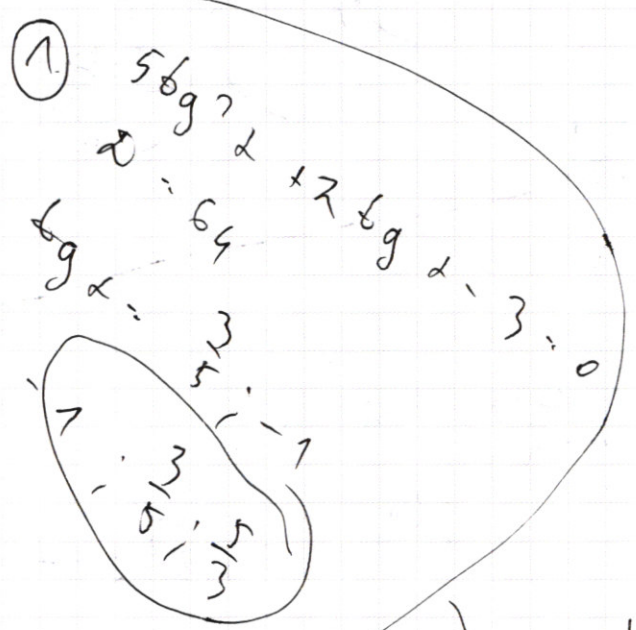 1
5tg²α + 2tgα - 3 = 0
D = 64
tgα = 3/5; -1
-1; 3/5; 5/3